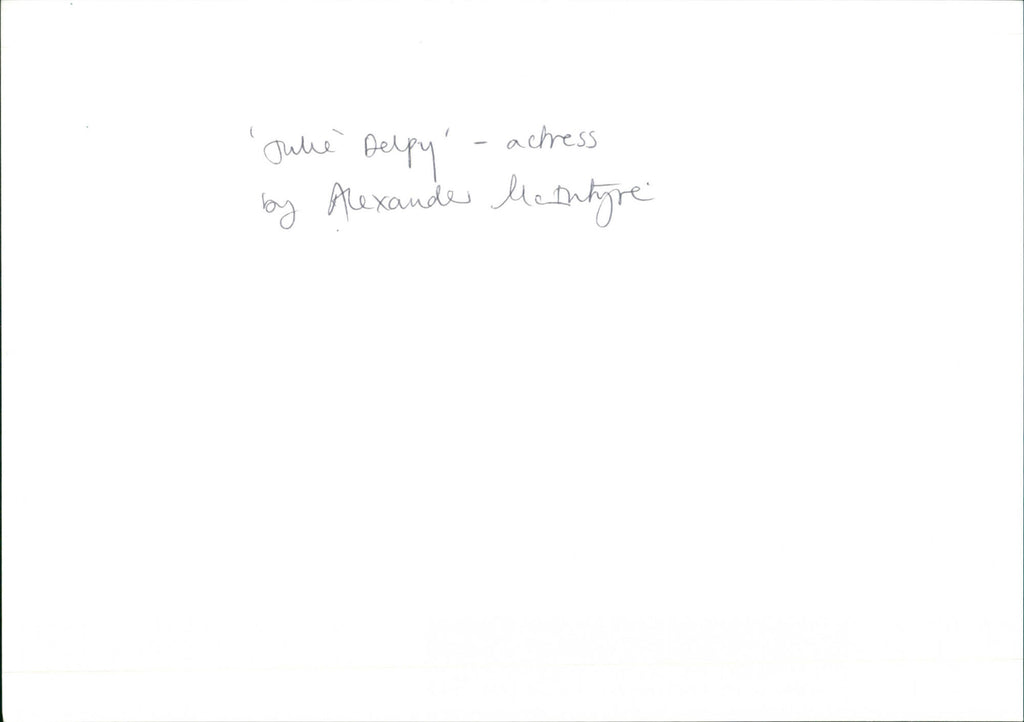 'Julie Delpy' - actress
by Alexander McIntyre